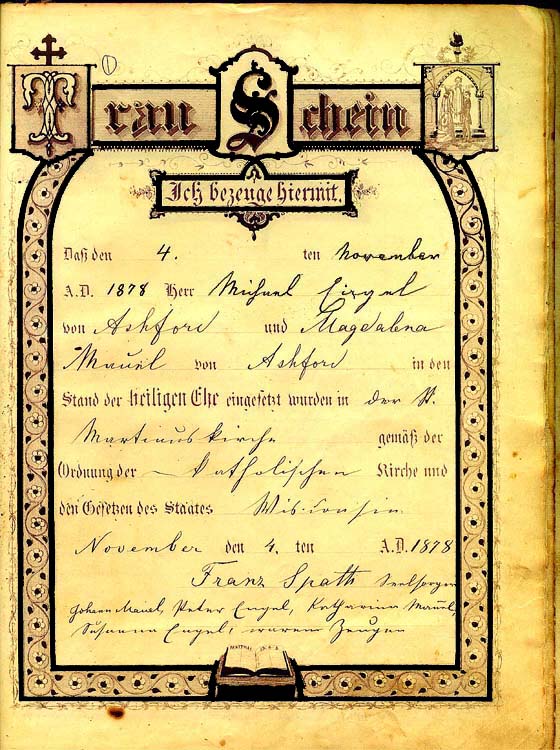 ①
Trau Schein
Ich bezeuge hiermit.
Daß den 4. ten November
A.D. 1878 Herr Michael Engel
von Ashford und Magdalena
Mauel von Ashford in den
Stand der heiligen Ehe eingesetzt wurden in der St.
Martinuskirche gemäß der
Ordnung der Katholischen Kirche und
den Gesetzen des Staates Wisconsin
November den 4. ten A.D. 1878
Franz Spath Seelsorger
Johann Mauel, Peter Engel, Katharina Mauel,
Susanna Engel, waren Zeugen